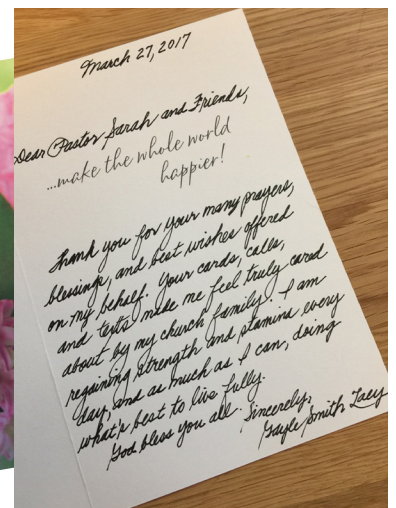 March 27, 2017
Dear Pastor Sarah and Friends,
...make the whole world
happier!
Thank you for your many prayers,
blessings, and best wishes offered
on my behalf. Your cards, calls,
and texts made me feel truly cared
about by my church family. I am
regaining strength and stamina every
day, and as much as I can, doing
what's best to live fully.
God bless you all. Sincerely,
Gayle Smith Lacy